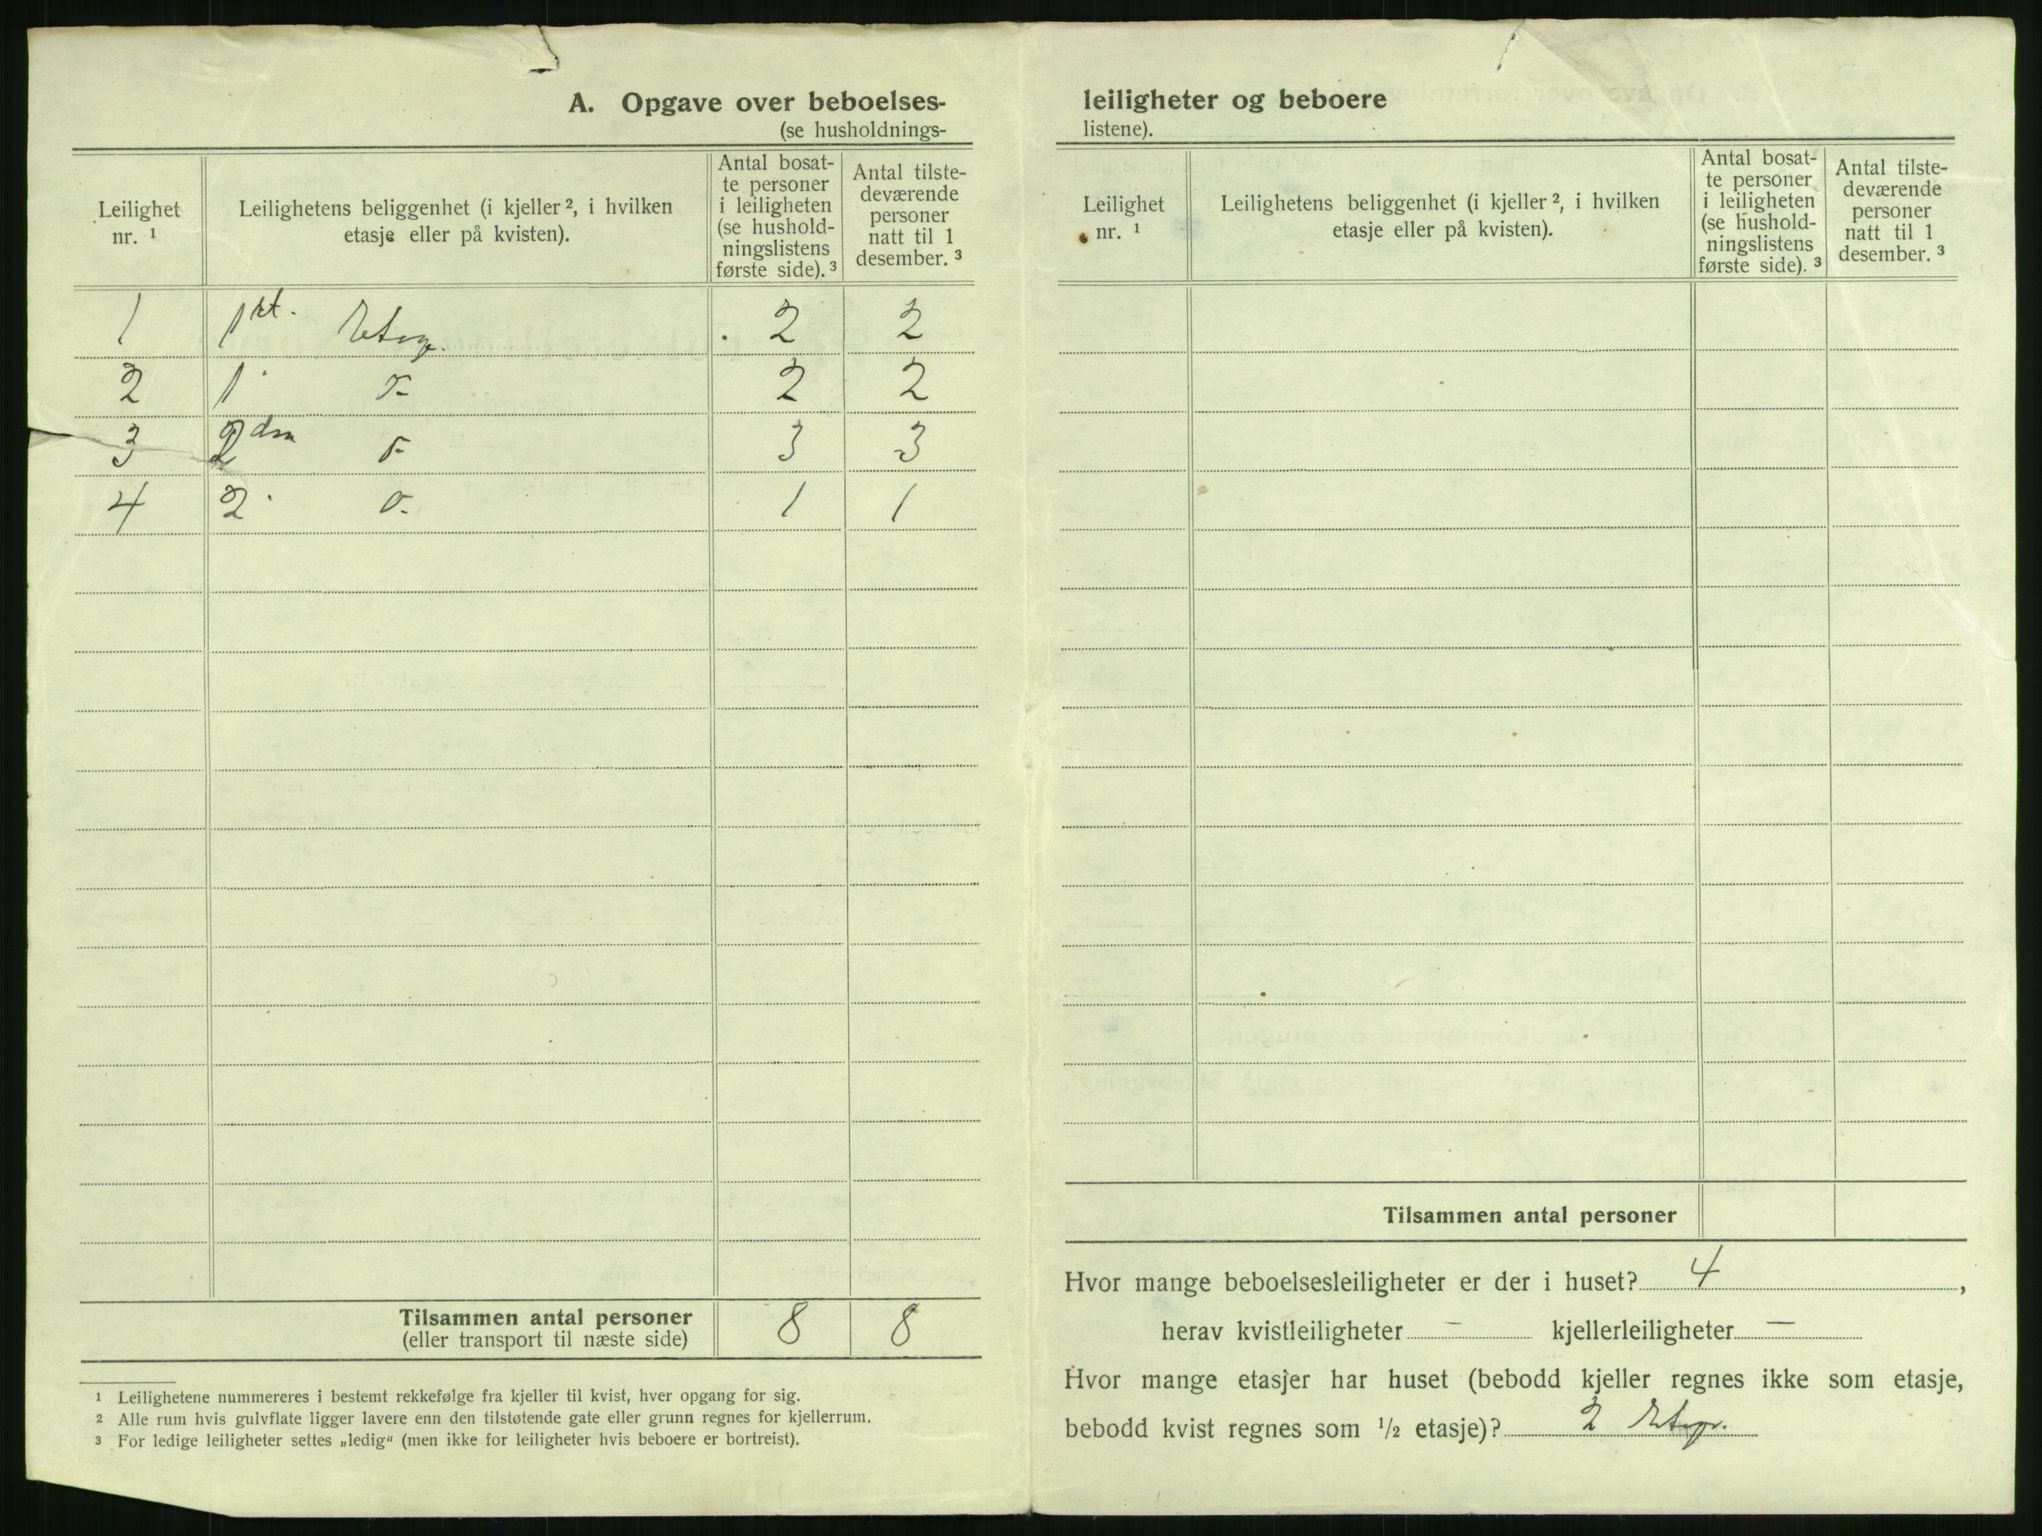 A. Opgave over beboelses-
(se husholdnings-
Leilighet
nr. ¹
Leilighetens beliggenhet (i kjeller ², i hvilken
etasje eller på kvisten).
Antal bosat-
te personer
i leiligheten
(se hushold-
ningslistens
første side). ³
Antal tilste-
deværende
personer
natt til 1
desember. ³
1 1st. Etage. 2 2
2 1 2 2
3 2den 3 3
4 2 1 1
Tilsammen antal personer 8 8
(eller transport til næste side)
¹ Leilighetene nummereres i bestemt rekkefølge fra kjeller til kvist, hver opgang for sig.
² Alle rum hvis gulvflate ligger lavere enn den tilstøtende gate eller grunn regnes for kjellerrum.
³ For ledige leiligheter settes „ledig“ (men ikke for leiligheter hvis beboere er bortreist).
leiligheter og beboere
listene).
Leilighet
nr. ¹
Leilighetens beliggenhet (i kjeller ², i hvilken
etasje eller på kvisten).
Antal bosat-
te personer
i leiligheten
(se hushold-
ningslistens
første side). ³
Antal tilste-
deværende
personer
natt til 1
desember. ³
Tilsammen antal personer
Hvor mange beboelsesleiligheter er der i huset? 4 ,
herav kvistleiligheter — kjellerleiligheter —
Hvor mange etasjer har huset (bebodd kjeller regnes ikke som etasje,
bebodd kvist regnes som ½ etasje)? 2 Etager.